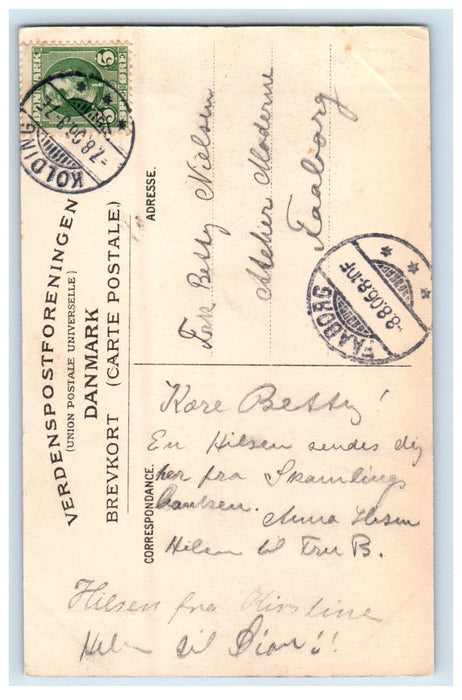 DANMARK
5
KOLDING
-7.8.06.
VERDENSPOSTFORENINGEN
(UNION POSTALE UNIVERSELLE)
DANMARK
BREVKORT (CARTE POSTALE)
ADRESSE.
Frk Betty Nielsen
Atelier Moderne
Faaborg
FAABORG
-8.8.06.8-10F
CORRESPONDANCE.
Kære Betty!
En Hilsen sendes dig
her fra Skamlings
banken.
Anna
Hilsen til Fru B.
Hilsen fra Kirstine
til